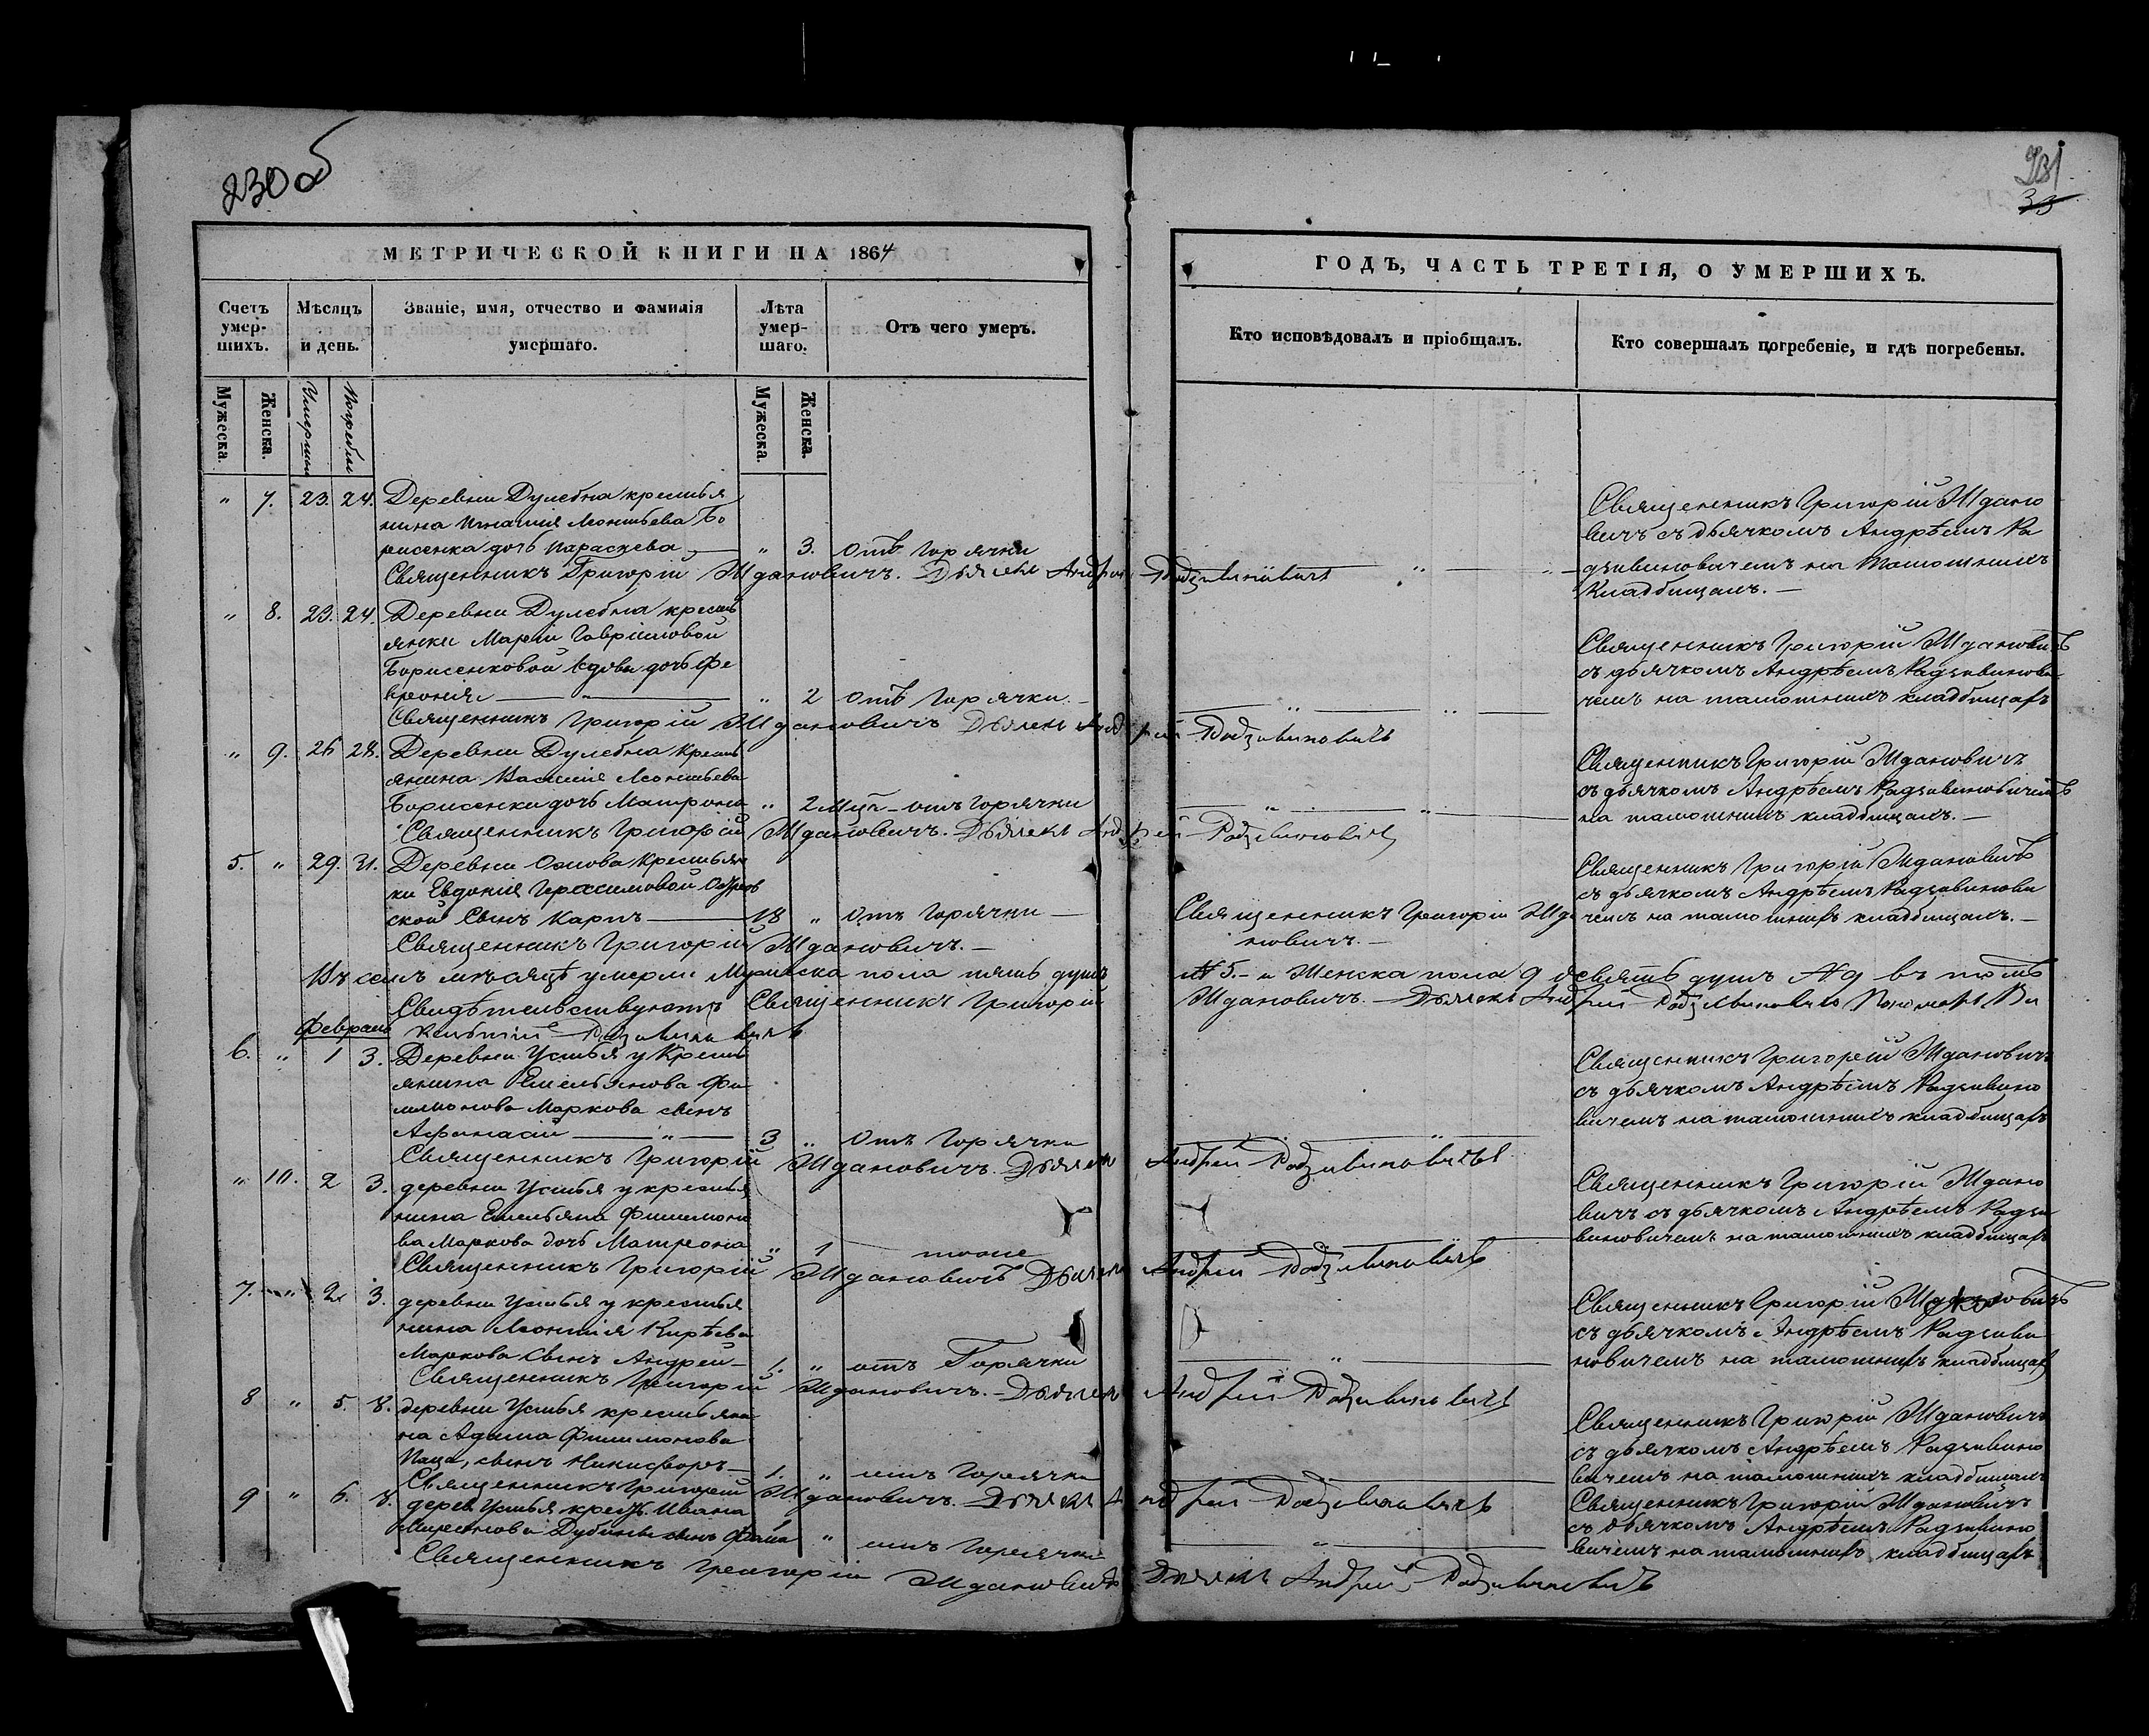 230 об
231
33
МЕТРИЧЕСКОЙ КНИГИ НА 1864
ГОДЪ, ЧАСТЬ ТРЕТІЯ, О УМЕРШИХЪ.
Счетъ умер-шихъ.
Мѣсяцъ и день.
Званіе, имя, отчество и фамилія умершаго.
Лѣта умер-шаго.
Отъ чего умеръ.
Кто исповѣдовалъ и пріобщалъ.
Кто совершалъ погребеніе, и гдѣ погребены.
Мужеска. Женска. Умерши Погребены Мужеска. Женска.
" 7. 23. 24. Деревни Дулебна крестья
нина Игнатія Леонтьева Бо
рисенка дочь Параскева " 3. отъ горячки
Священникъ Григорій Ждановичъ. Дьячекъ Андрей Радзивиновичъ
Священникъ Григорій Ждано
вичъ съ дьячкомъ Андрѣемъ Ра
дзивиновичемъ на тамошнихъ
кладбищахъ.
" 8. 23. 24. Деревни Дулебна кресть
янки Маріи Гавріиловой
Борисенковой вдовы дочь Фе
вронія " 2 отъ горячки
Священникъ Григорій Ждановичъ Дьячекъ Андрей Радзивиновичъ
Священникъ Григорій Ждановичъ
съ дьячкомъ Андрѣемъ Радзивинови
чемъ на тамошнихъ кладбищахъ
" 9. 26 28. Деревни Дулебна кресть
янина Василія Леонтьева
Борисенки дочь Матрона " 2 мѣц. отъ горячки
Священникъ Григорій Ждановичъ. Дьячекъ Андрей Радзивиновичъ
Священникъ Григорій Ждановичъ
съ дьячкомъ Андрѣемъ Радзивиновичемъ
на тамошнихъ кладбищахъ.
5. " 29. 31. Деревни крестьян
ки Евдокіи Герасимовой
ской сынъ Карпъ 18 " отъ горячки
Священникъ Григорій Жда
новичъ.
Священникъ Григорій Ждановичъ.
Священникъ Григорій Ждановичъ
съ дьячкомъ Андрѣемъ Радзивинови
чемъ на тамошнихъ кладбищахъ.
Въ семъ мѣсяцѣ умерли Мужеска пола пять душъ № 5. и Женска пола 9 девять душъ № 9 въ томъ
Свидѣтельствуютъ Священникъ Григорій Ждановичъ. Дьячекъ Андрей Радзивиновичъ Пономарь Ви
кентій Радзивиновичъ
Февраль
6. " 1 3. Деревни Устья у кресть
янина Емельянова Фи
лимонова Маркова сынъ
Афанасій 3 " отъ горячки
Священникъ Григорій Ждановичъ. Дьячекъ Андрей Радзивиновичъ
Священникъ Григорій Ждановичъ
съ дьячкомъ Андрѣемъ Радзивино
вичемъ на тамошнихъ кладбищахъ
" 10. 2 3. деревни Устья у крестья
нина Емельяна Филимоно
ва Маркова дочь Матрона " 1 тоже
Священникъ Григорій Ждановичъ Дьячекъ Андрей Радзивиновичъ
Священникъ Григорій Ждано
вичъ съ дьячкомъ Андрѣемъ Радзи
виновичемъ на тамошнихъ кладбищахъ
7. " 2 3. деревни Устья у крестья
нина Леонтія Кирѣева
Маркова сынъ Андрей 1. " отъ Горячки
Священникъ Григорій Ждановичъ. Дьячекъ Андрей Радзивиновичъ
Священникъ Григорій Ждановичъ
съ дьячкомъ Андрѣемъ Радзиви
новичемъ на тамошнихъ кладбищахъ
8 " 5. 8. деревни Устья крестьяни
на Адама Филимонова
сынъ Никифоръ 1. " отъ Горячки
Священникъ Григорій Ждановичъ. Дьячекъ Андрей Радзивиновичъ
Священникъ Григорій Ждановичъ
съ дьячкомъ Андрѣемъ Радзивино
вичемъ на тамошнихъ кладбищахъ
9 " 6. 8. дерев. Устья крест. Ивана
Миронова сынъ " отъ Горячки
Священникъ Григорій Ждановичъ Дьячекъ Андрей Радзивиновичъ
Священникъ Григорій Ждановичъ
съ дьячкомъ Андрѣемъ Радзивино
вичемъ на тамошнихъ кладбищахъ